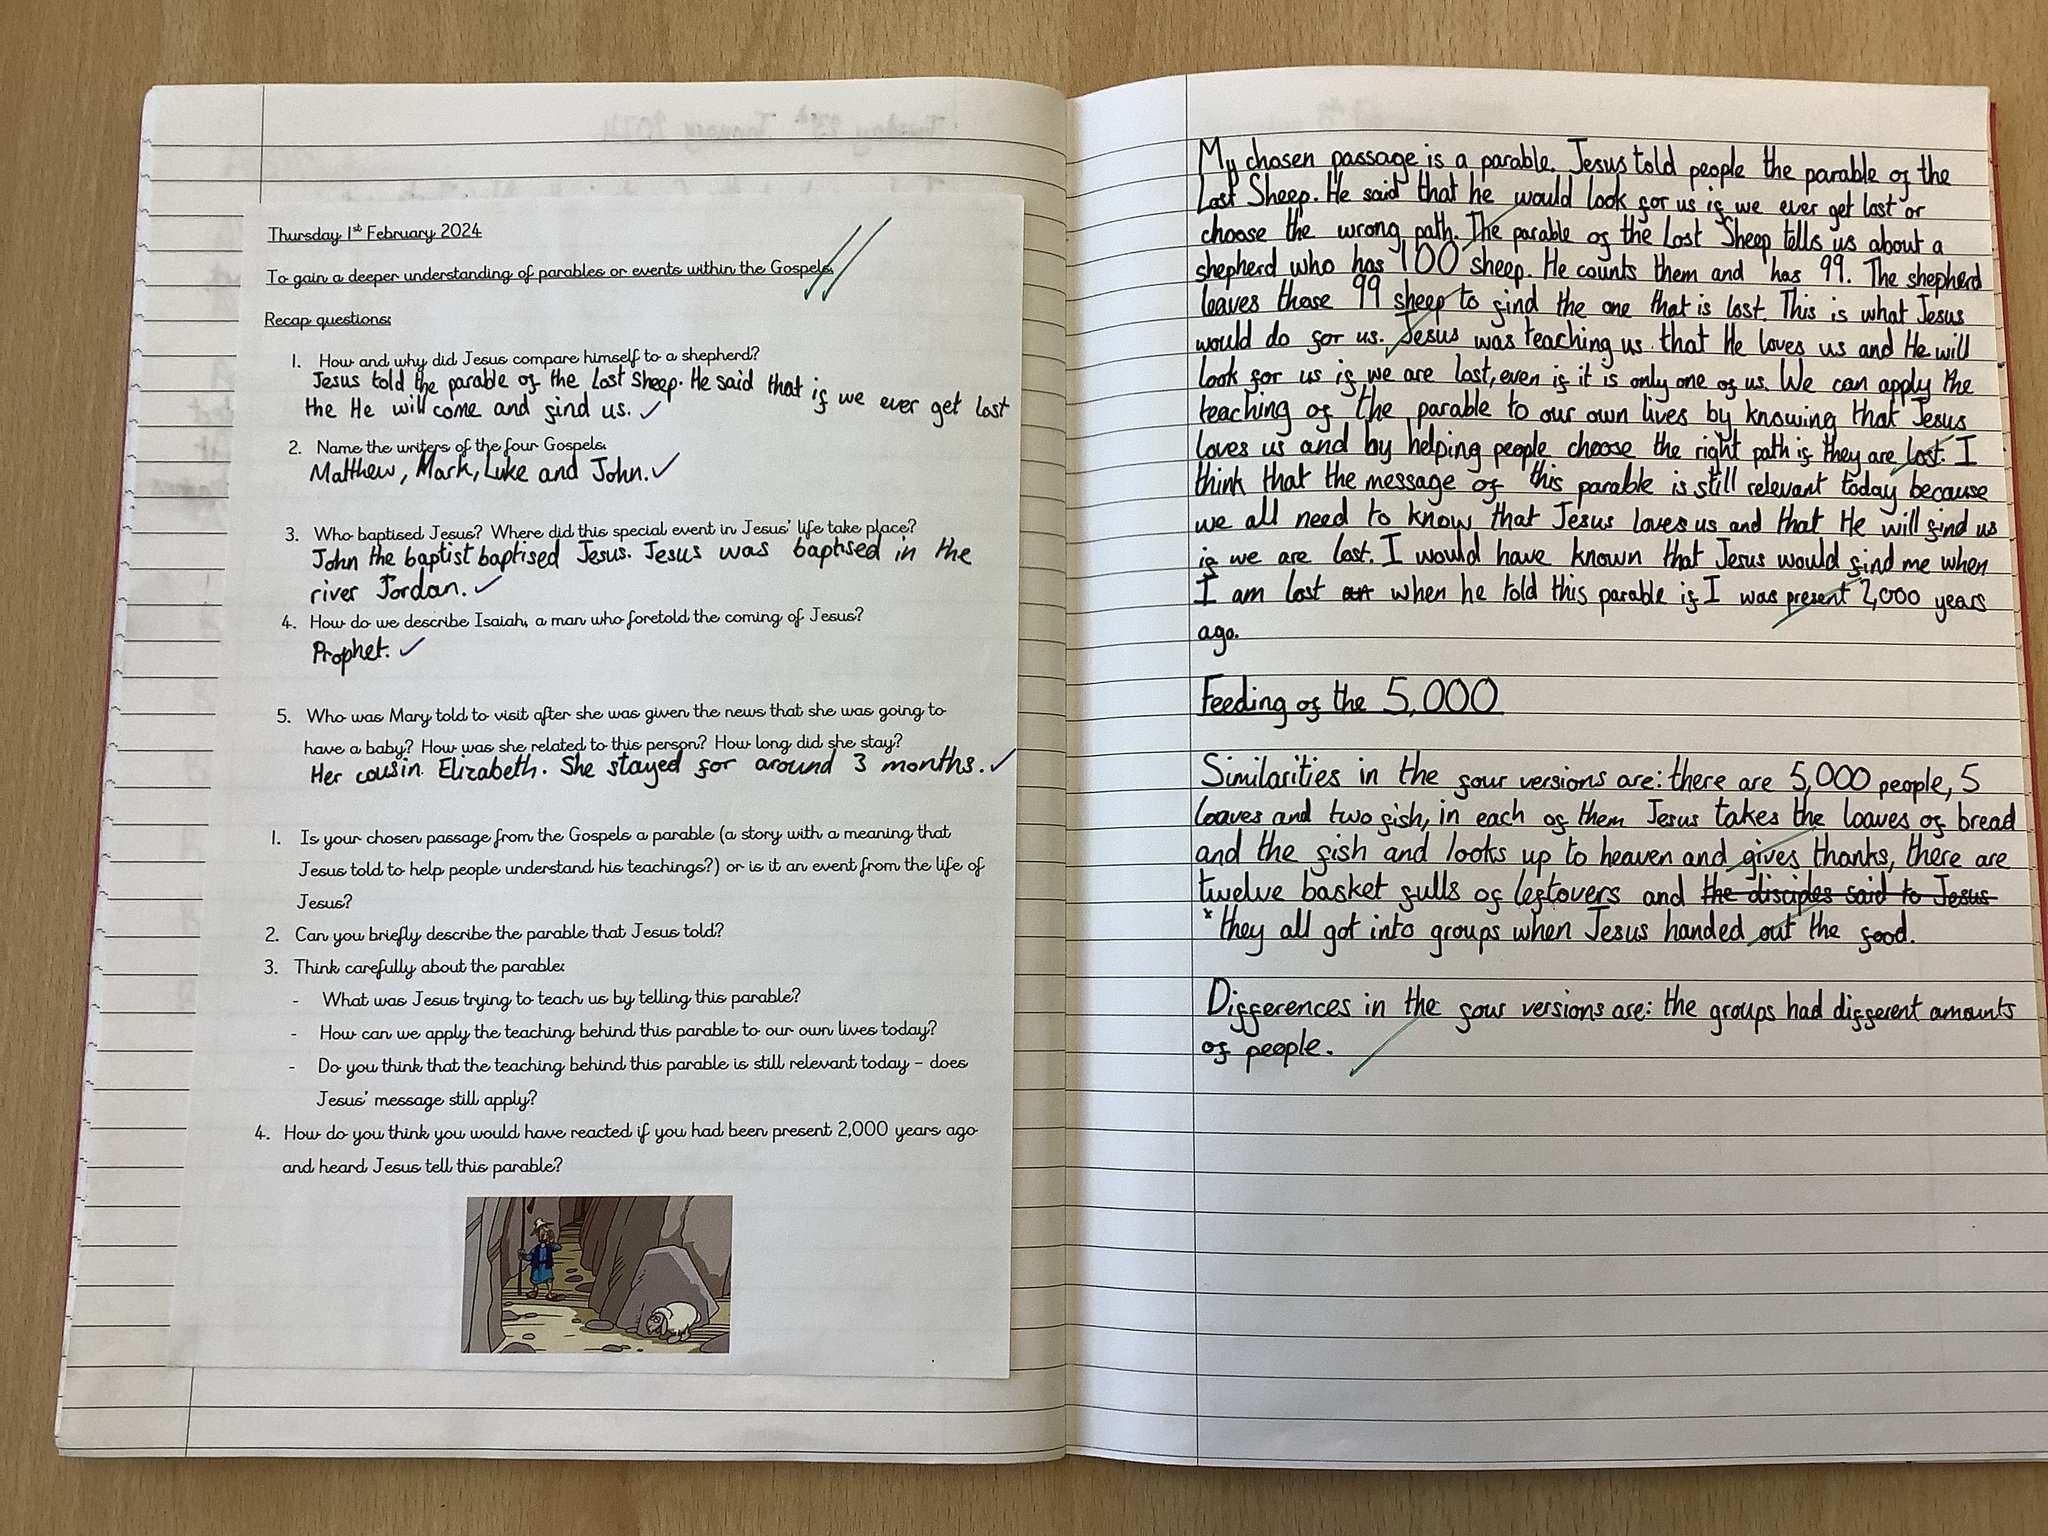 Thursday 1st February 2024
To gain a deeper understanding of parables or events within the Gospels.
Recap questions:
1. How and why did Jesus compare himself to a shepherd?
Jesus told the parable of the Lost Sheep. He said that if we ever get lost
the He will come and find us.
2. Name the writers of the four Gospels.
Matthew, Mark, Luke and John.
3. Who baptised Jesus? Where did this special event in Jesus' life take place?
John the baptist baptised Jesus. Jesus was baptised in the
river Jordan.
4. How do we describe Isaiah, a man who foretold the coming of Jesus?
Prophet.
5. Who was Mary told to visit after she was given the news that she was going to
have a baby? How was she related to this person? How long did she stay?
Her cousin Elizabeth. She stayed for around 3 months.
1. Is your chosen passage from the Gospels a parable (a story with a meaning that
Jesus told to help people understand his teachings?) or is it an event from the life of
Jesus?
2. Can you briefly describe the parable that Jesus told?
3. Think carefully about the parable:
- What was Jesus trying to teach us by telling this parable?
- How can we apply the teaching behind this parable to our own lives today?
- Do you think that the teaching behind this parable is still relevant today – does
Jesus' message still apply?
4. How do you think you would have reacted if you had been present 2,000 years ago
and heard Jesus tell this parable?
My chosen passage is a parable. Jesus told people the parable of the
Lost Sheep. He said that he would look for us if we ever get lost or
choose the wrong path. The parable of the Lost Sheep tells us about a
shepherd who has 100 sheep. He counts them and has 99. The shepherd
leaves those 99 sheep to find the one that is lost. This is what Jesus
would do for us. Jesus was teaching us that He loves us and He will
look for us if we are lost, even if it is only one of us. We can apply the
teaching of the parable to our own lives by knowing that Jesus
loves us and by helping people choose the right path if they are lost. I
think that the message of this parable is still relevant today because
we all need to know that Jesus loves us and that He will find us
if we are lost. I would have known that Jesus would find me when
I am lost when he told this parable if I was present 2,000 years
ago.
Feeding of the 5,000
Similarities in the four versions are: there are 5,000 people, 5
loaves and two fish, in each of them Jesus takes the loaves of bread
and the fish and looks up to heaven and gives thanks, there are
twelve basket fulls of leftovers and the disciples said to Jesus
*they all got into groups when Jesus handed out the food.
Differences in the four versions are: the groups had different amounts
of people.